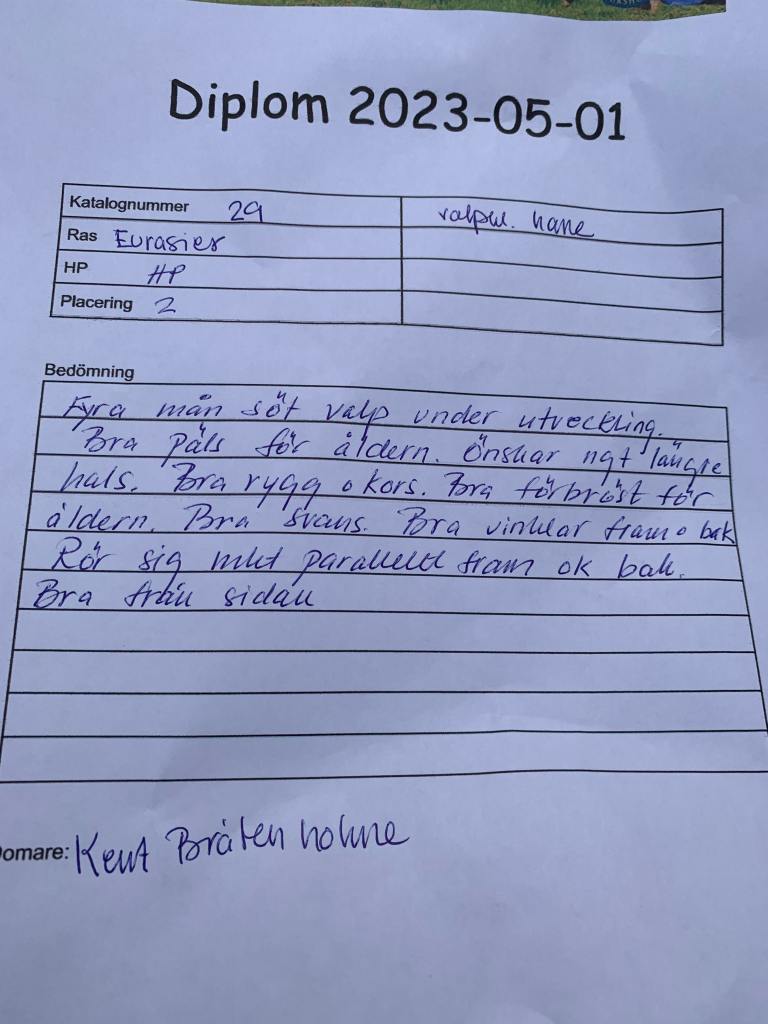 Diplom 2023-05-01
Katalognummer 29
valpkl. hane
Ras Eurasier
HP HP
Placering 2
Bedömning
Fyra mån söt valp under utveckling.
Bra päls för åldern. Önskar ngt längre
hals. Bra rygg o kors. Bra förbröst för
åldern. Bra svans. Bra vinklar fram o bak
Rör sig mkt parallellt fram ok bak.
Bra från sidan
Domare: Kent